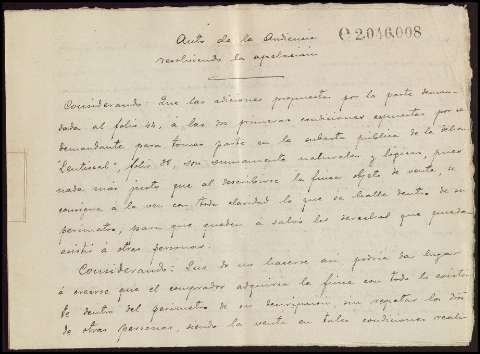 Auto de la Audiencia
C2.046,008
resolviendo la apelación
Considerando: Que las adiciones propuestas por la parte deman-
dada al folio 44, á las dos primeras condiciones expuestas por el
demandante para tomar parte en la subasta pública de la
"Lentiscal", folio 38, son sumamente naturales y lógicas, pues
nada más justo que al describirse la finca objeto de venta, se
consigne á la vez con toda claridad lo que se halle dentro de su
perímetro, para que queden á salvo los derechos que puedan
asistir á otras personas.
Considerando: Que de no hacerse así podría dar lugar
á creerse que el comprador adquiría la finca con todo lo existen-
te dentro del perímetro de su descripción, sin respetar los dros
de otras personas, siendo la venta en tales condiciones